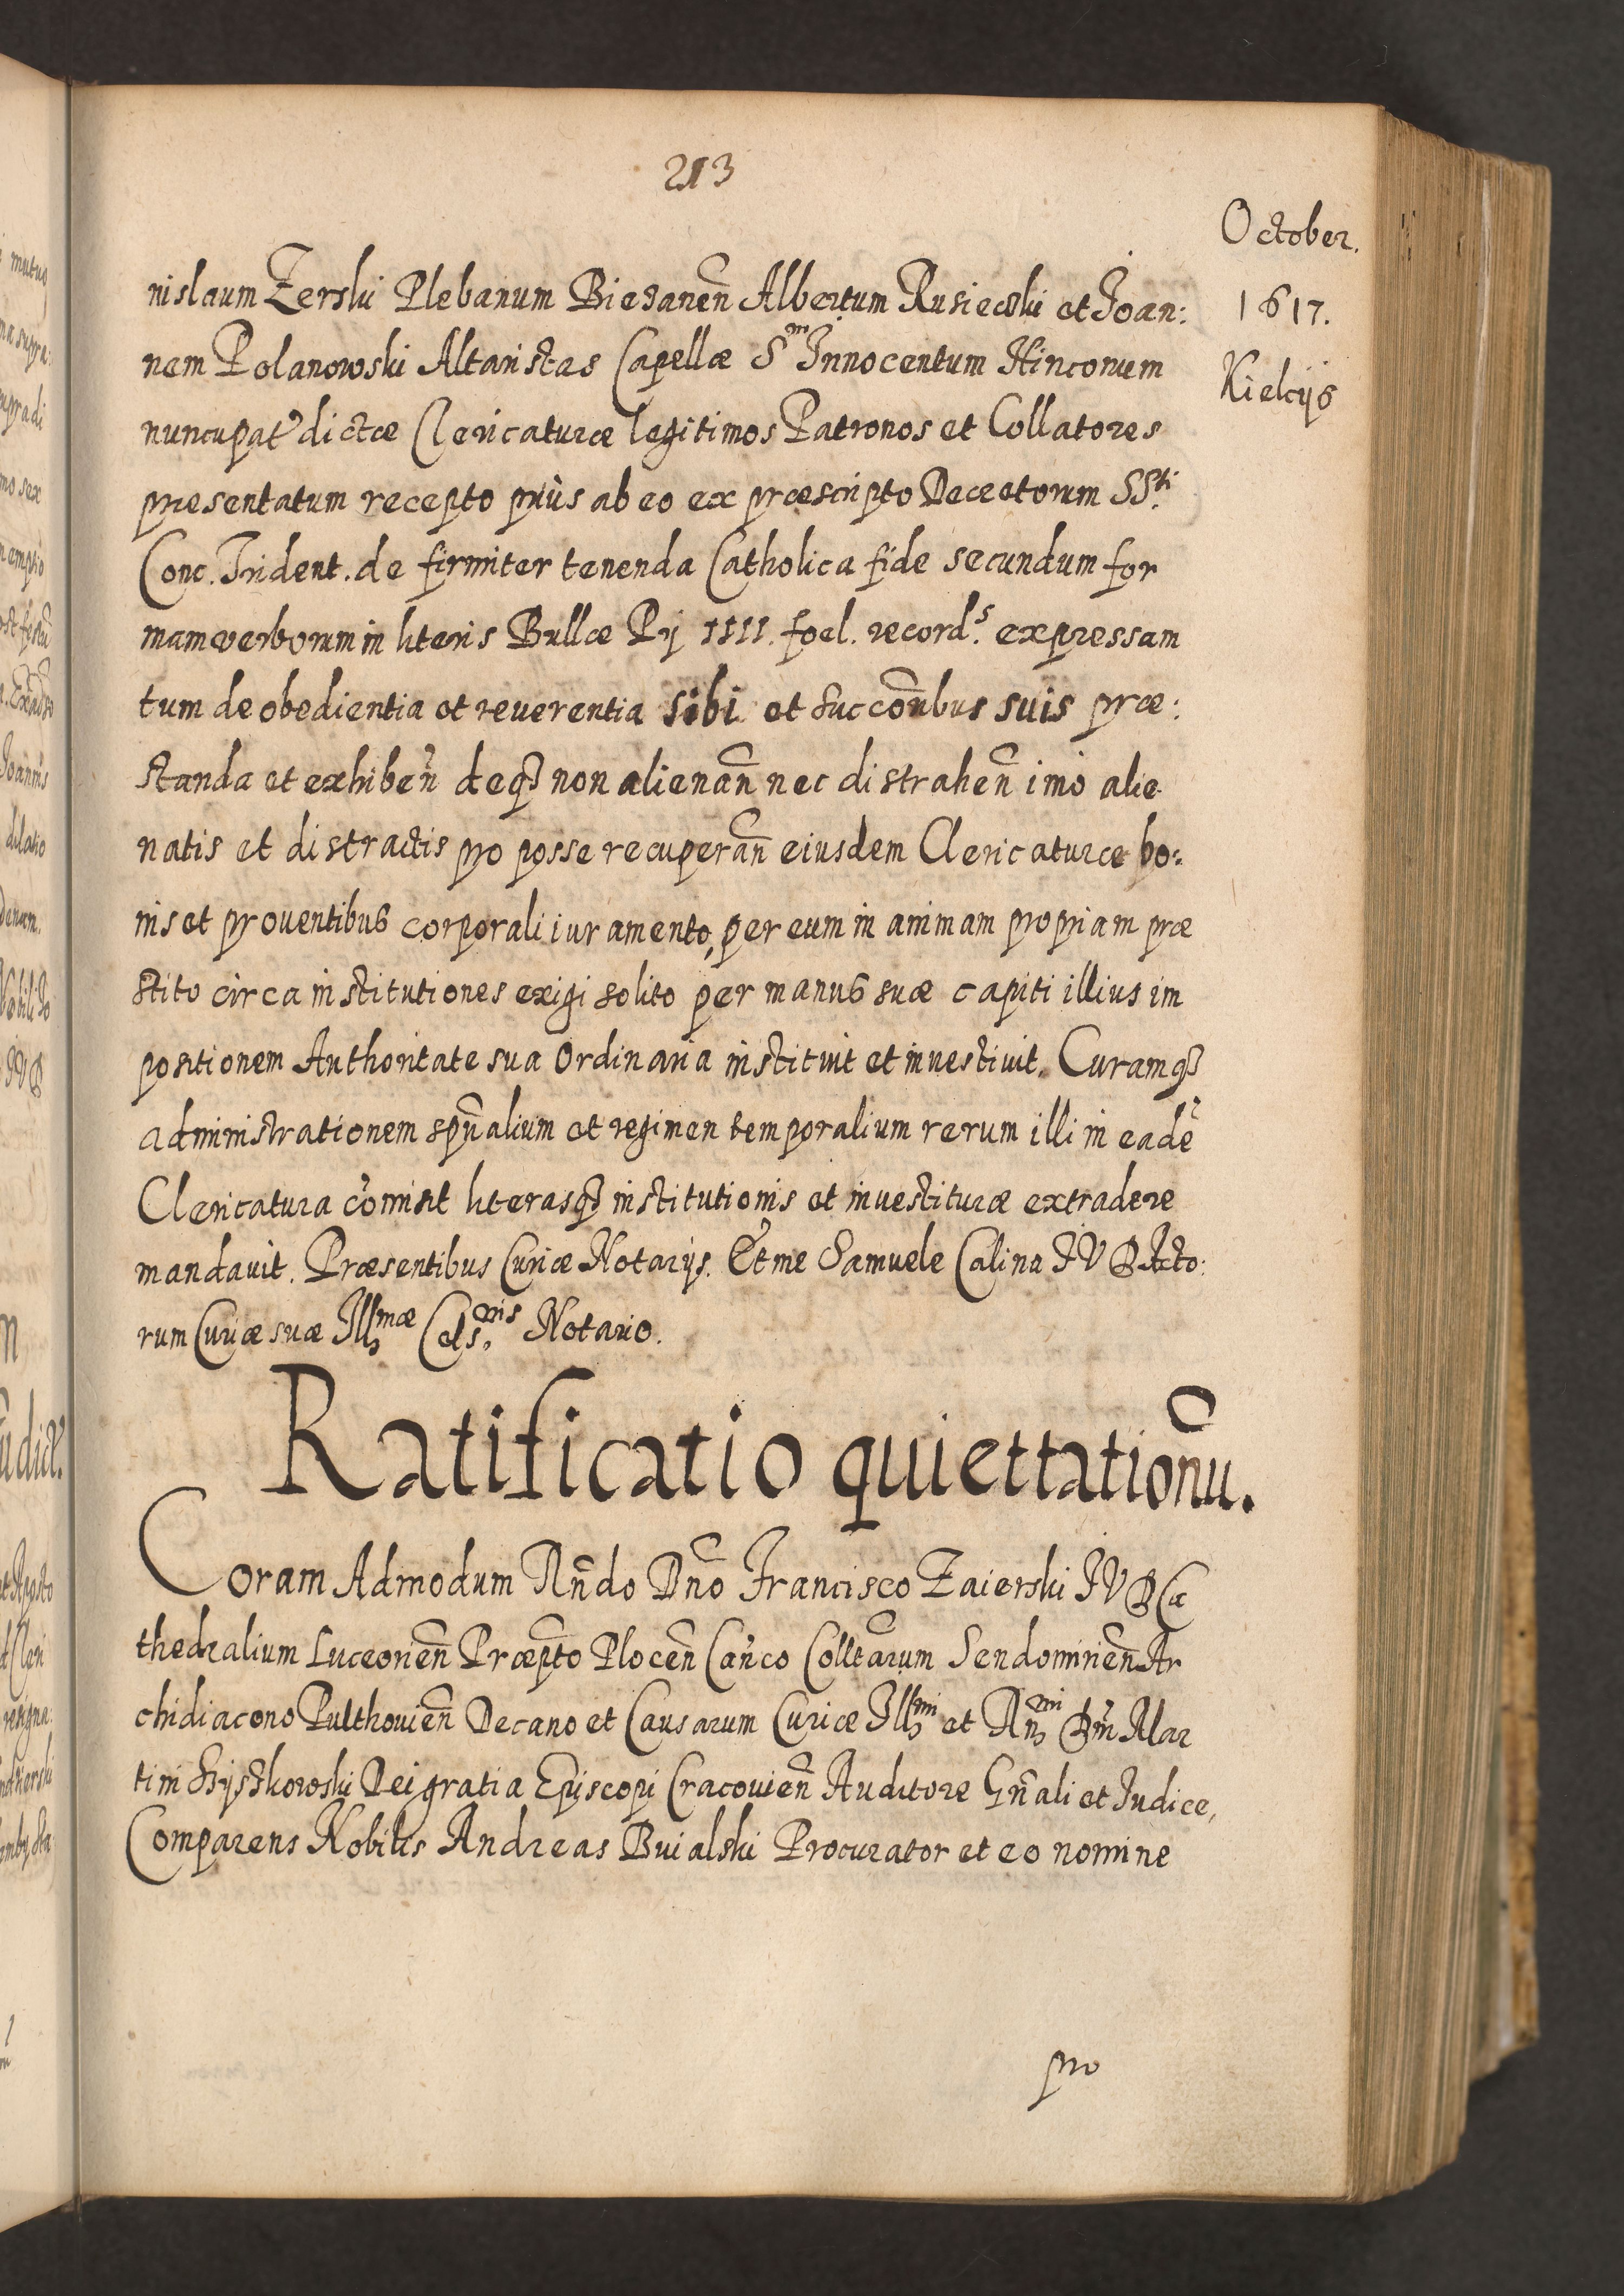 213
October.
1617.
Kielcijs
nislaum Zerski Plebanum Bieganen̄ Albertum Rusiecski et Joan:
nem Polanowski Altaristas Capellæ Sᵐ Innocentum Hinconum
nuncupat dictæ Clericaturæ legitimos Patronos et Collatores
presentatum recepto priùs ab eo ex præscripto Decretorum SSᵗⁱ.
Conc. Trident. de firmiter tenenda Catholica fide secundum for
mam verborum in literis Bullæ Pij IIII. foel. recordˢ. expressam
tum de obedientia et reverentia sibi et succon̄bus suis præ:
standa et exhiben̄ deq3 non alienan̄ nec distrahen̄ imò alie
natis et distractis pro posse recuperan̄ eiusdem Clericaturæ bo:
nis et proventibus corporali iuramento, per eum in animam propriam præ
stito circa institutiones exigi solito per manus suæ capiti illius im
positionem Authoritate sua Ordinaria instituit et investivit. Curamq3
administrationem spn̄alium et regimen temporalium rerum illi in eadē
Clericatura com̄isit literasq3 institutionis et investituræ extradere
mandavit. Præsentibus Curiæ Notarijs. Et me Samuele Calina JVD Acto:
rum Curiæ suæ Illᵐᵃᵉ Cels.ⁿⁱˢ Notario.
Ratificatio quiettation̄u.
Coram Admodum Rn̄do Dn̄o Francisco Zaierski JVD Ca
thedralium Luceorien̄ Præpt̄o Plocen̄ Can̄co Collt̄arum Sendomirien̄ Ar
chidiacono Pulthovien̄ Decano et Causarum Curiæ Illᵐⁱ et Rn̄ᵐⁱ Dn̄i Mar
tini Szyszkowski Dei gratia Episcopi Cracovien̄ Auditore Gn̄ali et Judice,
Comparens Nobilis Andreas Buialski Procurator et eo nomine
pro